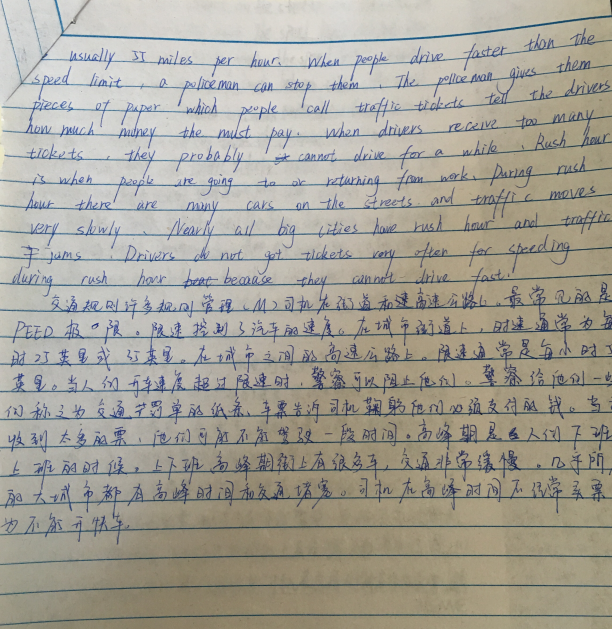 usually 55 miles per hour. When people drive faster than the
speed limit, a policeman can stop them. The policeman gives them
pieces of paper which people call traffic tickets tell the drivers
how much money the must pay. When drivers receive too many
tickets, they probably cannot drive for a while. Rush hour
is when people are going to or returning from work. During rush
hour there are many cars on the streets and traffic moves
very slowly. Nearly all big cities have rush hour and traffic
jams. Drivers do not got tickets very often for speeding
during rush hour because they cannot drive fast.
交通规则许多规则管理。M2司机在街道和速高速公路上。最常见的是
PEED 极限。限速控制了汽车的速度。在城市街道上,时速通常为每
时25英里或35英里。在城市之间的高速公路上。限速通常是每小时
英里。当人们开车速度超过限速时,警察可以阻止他们。警察给他们一
们称之为交通罚单的纸条。车票告诉司机鞠躬他们必须支付的钱。当
收到太多的票,他们可能不能驾驶一段时间。高峰期是人们下班
上班的时候。上下班高峰期街上有很多车,交通非常缓慢。几乎所
的大城市都有高峰时间和交通堵塞。司机在高峰时间不经常买票
为不能开快车。